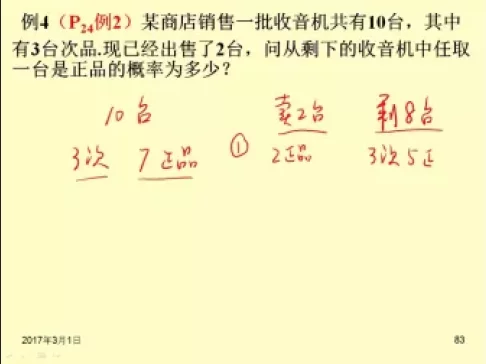 例4（P24例2）某商店销售一批收音机共有10台，其中
有3台次品.现已经出售了2台，问从剩下的收音机中任取
一台是正品的概率为多少？
10台 卖2台 剩8台
3次 7正品 ① 2正品 3次5正
2017年3月1日 83